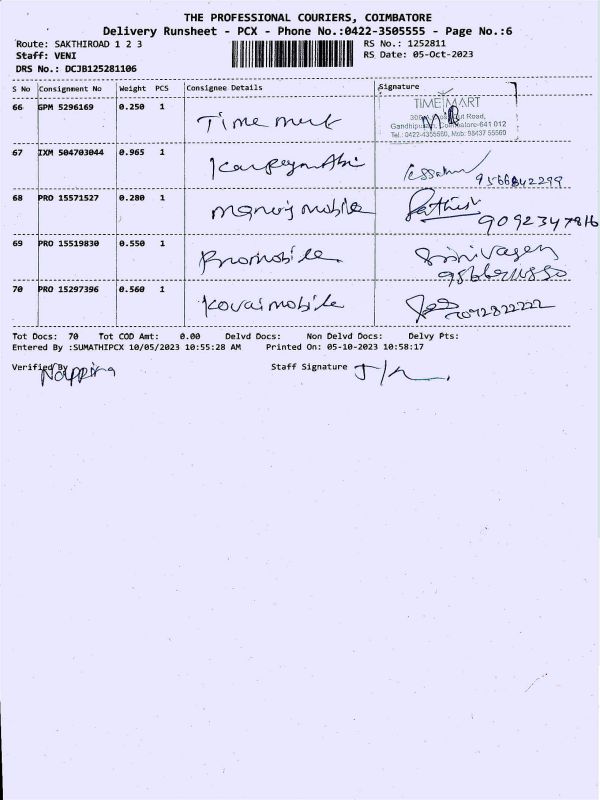 THE PROFESSIONAL COURIERS, COIMBATORE
Delivery Runsheet - PCX - Phone No.:0422-3505555 - Page No.:6
Route: SAKTHIROAD 1 2 3 RS No.: 1252811
Staff: VENI RS Date: 05-Oct-2023
DRS No.: DCJB125281106
S No Consignment No Weight PCS Consignee Details Signature
66 GPM 5296169 0.250 1 Time mart
TIME MART
Road,
Gandhipuram, Coimbatore-641 012
Tel.: 0422-4355560, Mob: 98437 55560
67 IXM 504703044 0.965 1 9566842299
68 PRO 15571527 0.280 1 manoj mobile Sathish
9092347816
69 PRO 15519830 0.550 1 Promobile Srinivasen
70 PRO 15297396 0.560 1 kovai mobile
Tot Docs: 70 Tot COD Amt: 0.00 Delvd Docs: Non Delvd Docs: Delvy Pts:
Entered By :SUMATHIPCX 10/05/2023 10:55:28 AM Printed On: 05-10-2023 10:58:17
Verified By Staff Signature